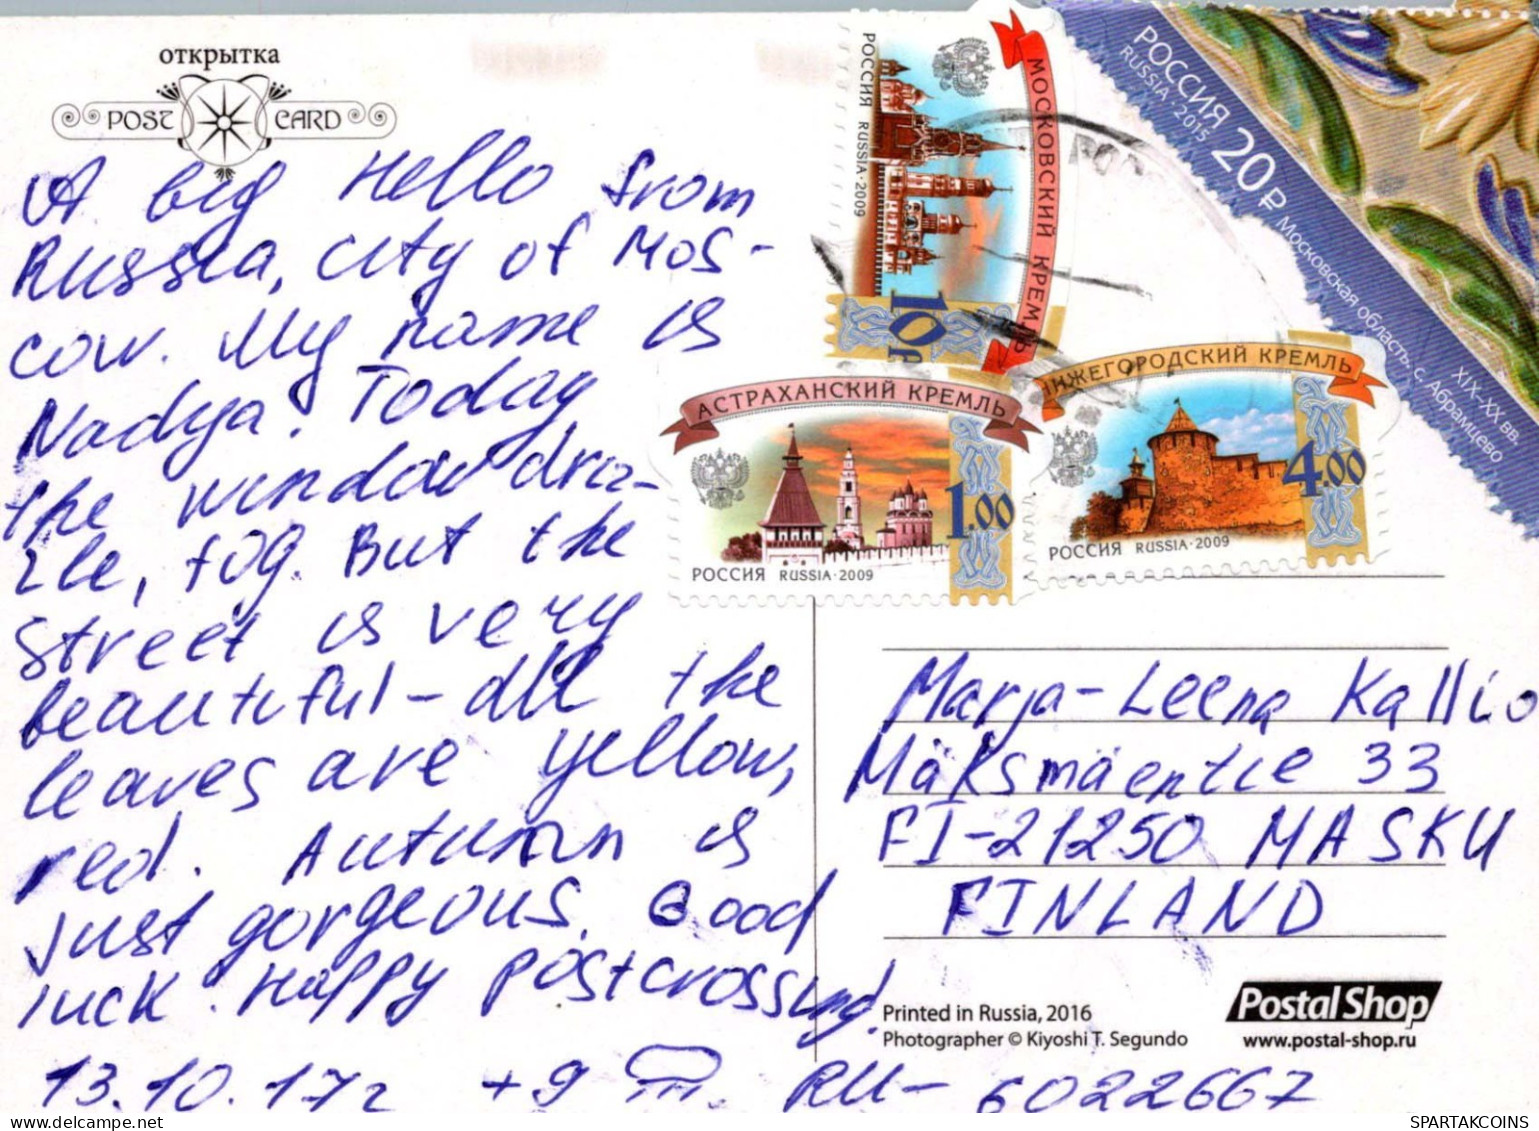 открытка
POST CARD
A big Hello from
Russia, city of Mos-
cow. My name is
Nadya. Today
the window driz-
zle, fog. But the
street is very
beautiful - all the
leaves are yellow,
red. Autumn is
just gorgeous. Good
luck. Happy postcrossing!
13.10.17г +9
RU-6022667
РОССИЯ RUSSIA·2009
МОСКОВСКИЙ КРЕМЛЬ
10
РОССИЯ 20₽
RUSSIA·2015
Московская область. с. Абрамцево
XIX-XX вв.
АСТРАХАНСКИЙ КРЕМЛЬ
1.00
РОССИЯ RUSSIA·2009
НИЖЕГОРОДСКИЙ КРЕМЛЬ
4.00
РОССИЯ RUSSIA·2009
Marja-Leena Kallio
Mäksmäentie 33
FI-21250 MASKU
FINLAND
Printed in Russia, 2016
Photographer © Kiyoshi T. Segundo
Postal Shop
www.postal-shop.ru
SPARTAKCOINS